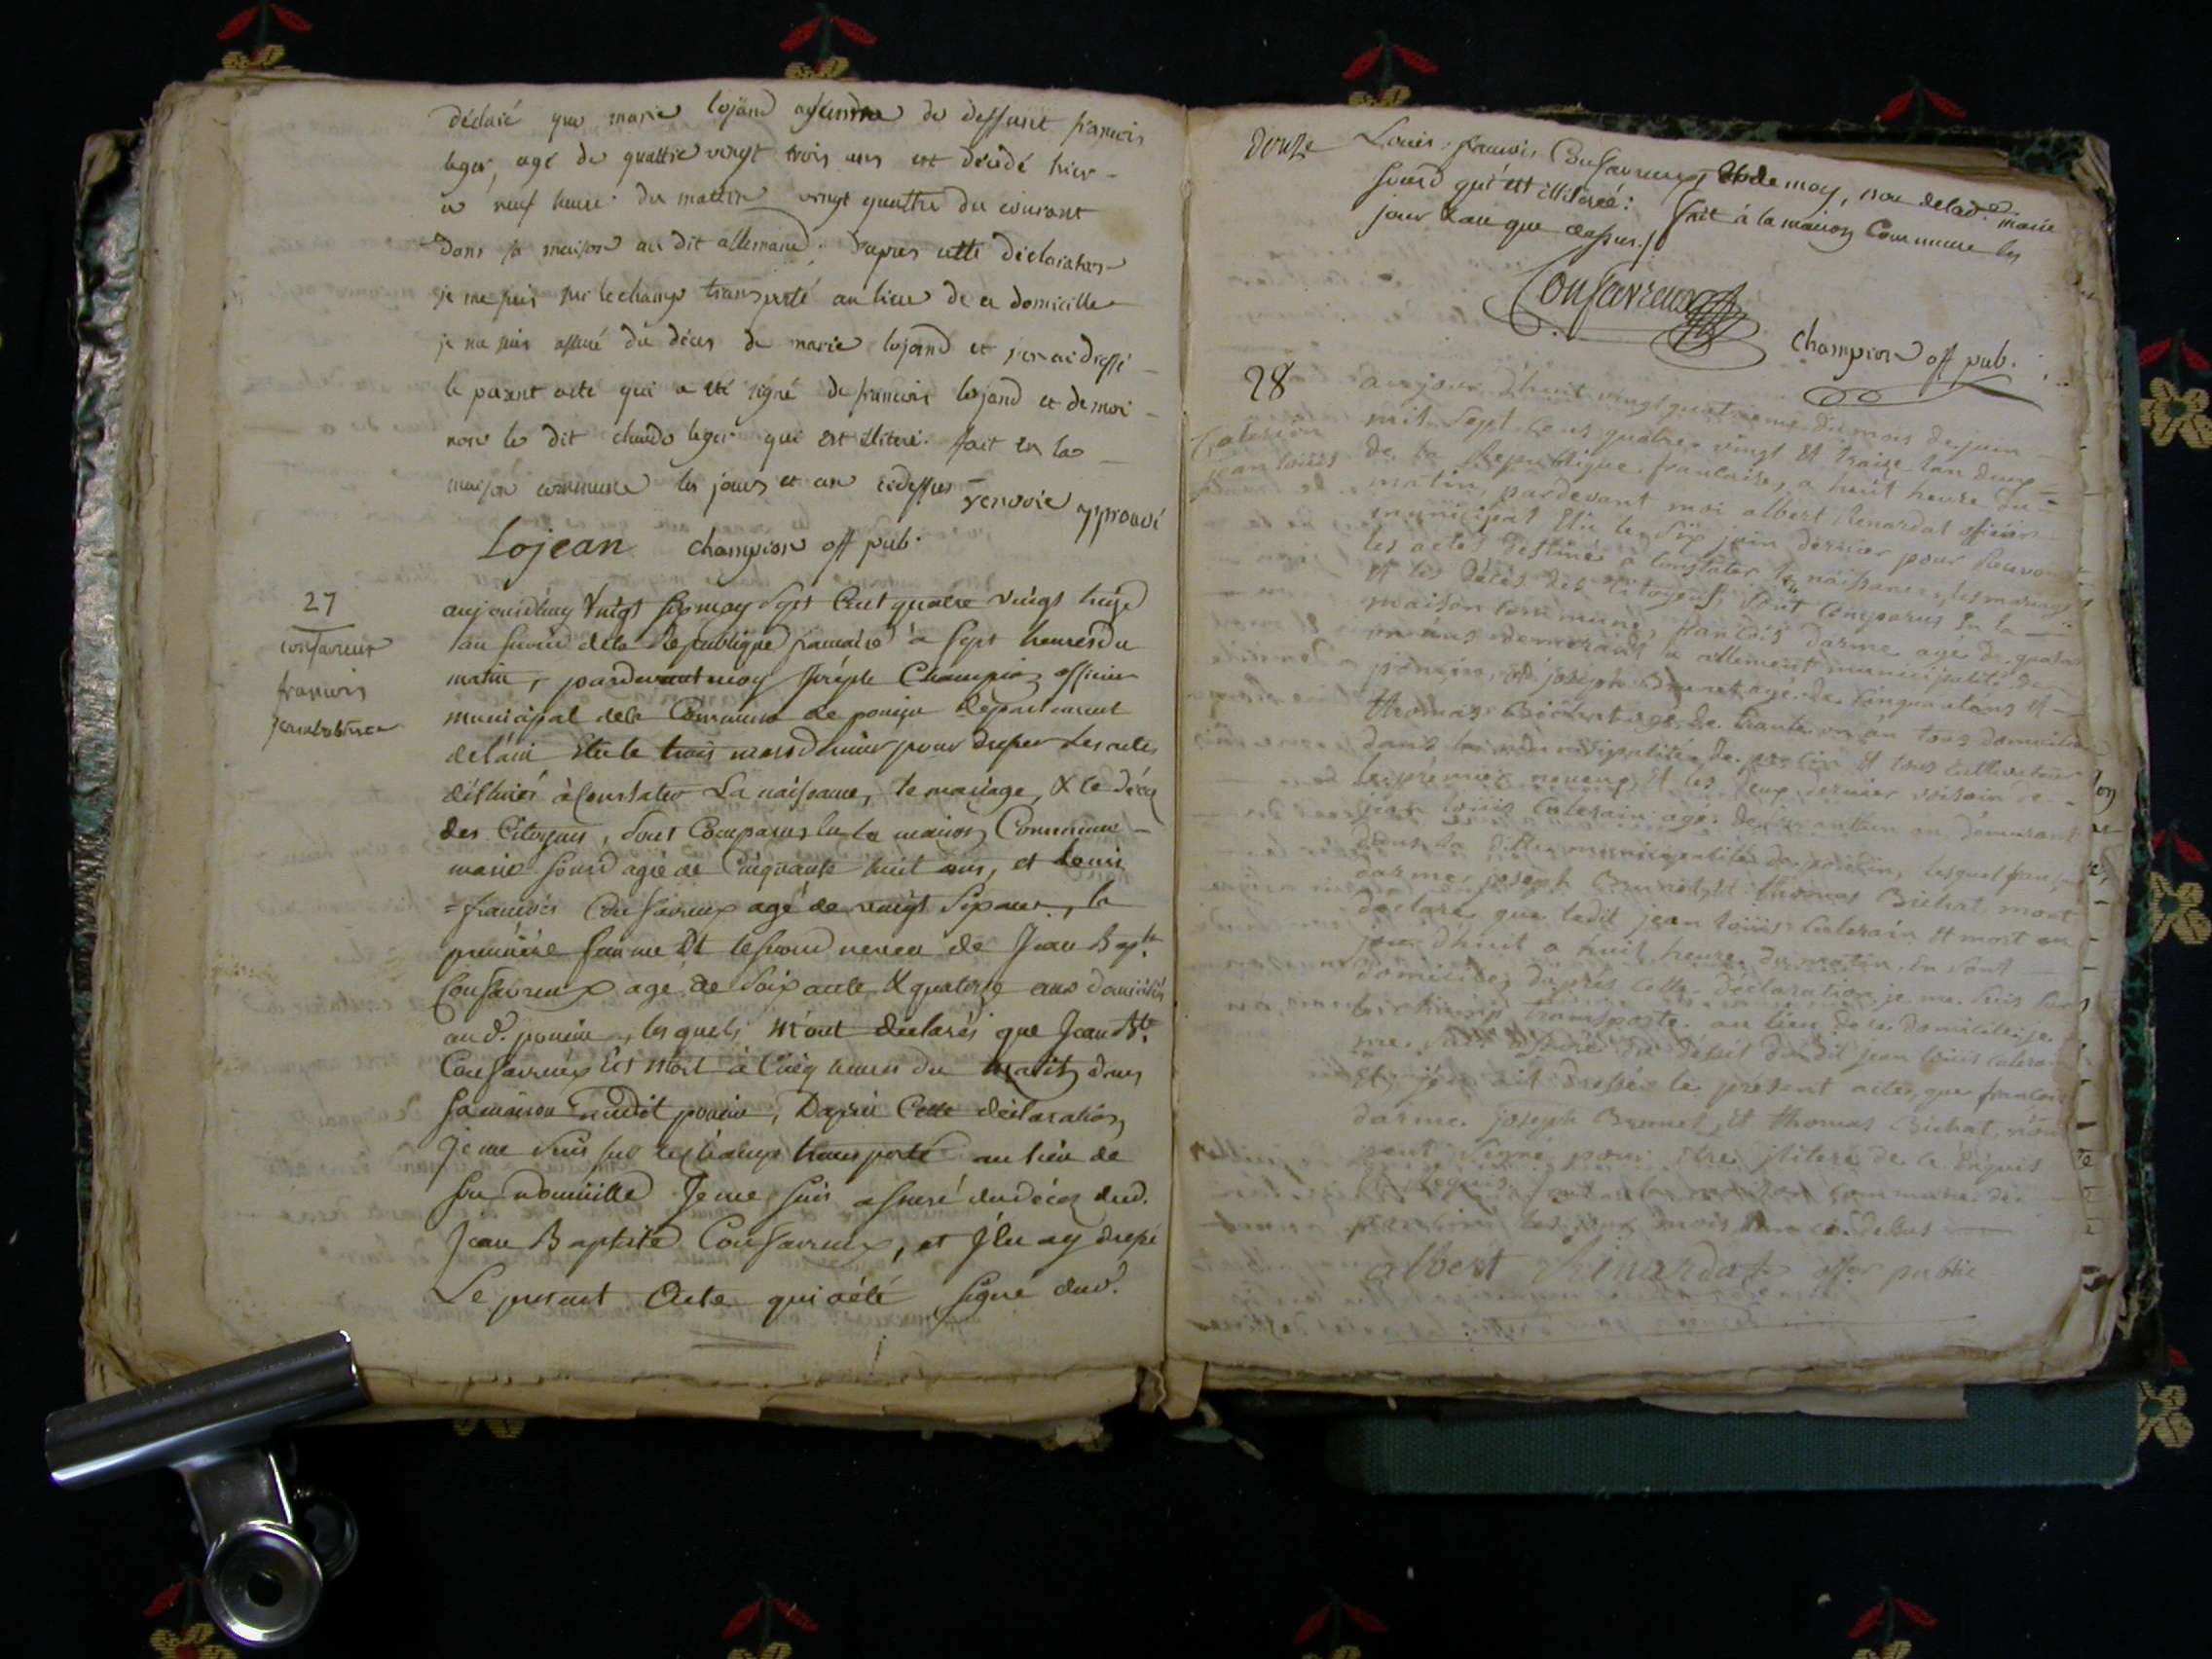 déclaré que marie lojand de deffunt francois
leger, agé de quattre vingt trois ans est décédé hier
a neuf heure du mattin vingt quattre du courant
dans sa maison au dit allemand. dapres cette déclaration
je me suis sur le champ transporté au lieu de ce domicille
je me suis assuré du déces de marie lojand et j'en ai dressé
le présent acte qui a eté signé de francois lojand et de moi
non le dit claude leger qui est illitéré. fait en la
maison commune les jours et an cidessus renvoie approuvé
Lojean champion off pub.
27
confavreux
francois
jean batiste
aujourdhuy vingt six may sept Cent quatre vingt treize
lan second de la Republique francaise à sept heures du
matin, pardevant moy Joseph Champion officier
municipal de la Commune de poncin département
de lain Elu le trois mars dernier pour dresser les actes
déstinés à Constater La naissance, le mariage, & le décez
des Citoyens, sont Comparus en la maison Commune
marie sourd agée de Cinquante huit ans, et Louis
=francois Confavreux agé de vingt sept ans, la
première femme Et le second neveu de Jean Bapte.
Confavreux agé de soixante & quatorze ans domicilié
aud. poncin, les quels m'ont déclarés que Jean Bte.
Confavreux Est Mort à Cinq heures du matin dans
sa maison audit poncin, D'après Cette déclaration
Je me suis sur le champ transporté au lieu de
son domicille Je me suis assuré du décez dud.
Jean Baptiste Confavreux, et J'en ay dressé
Le present Acte qui a été signé dud.
Douze
Louis francois Confavreux, Et de moy, non de lad. marie
sourd qui est illiterée: fait à la maison Commune les
jour & an que dessus./.
Confavreux
champion off pub.
28
Calerain
jean louis
aujour d'huit vingt quatrieme du mois de juin
mil sept cens quatre vingt Et traize lan deux
de la Republique francaise, a huit heure du
matin, pardevant moi albert Renardat officier
municipal Elu le dix juin dernier pour
les actes destiné a Constater les naissances, les mariages
Et les décès des Citoyens, sont Comparus En la
maison commune, francois darme agé de
demeurant a allement, municipalité de
poncin, et joseph Brunet age de cinquante ans Et
thomas Bichat agé de trante un an tous domicilié
dans la municipalité de poncin Et tous cultivateur
le premier neveux Et les deux dernier voisain de
jean louis Calerain agé de an, demeurant
dans la ditte municipalité de poncin, lesquel francois
darme, joseph Brunet, Et thomas Bichat mont
declaré que ledit jean louis Calerain Et mort au
jour d'huit a huit heure du matin En sont
domicile, dapres cette declaration, je me suis sur
le champ transporté au lieu de ce domicile, je
me suis assuré du décés dudit jean louis Calerain
Et j'en ait dressé le présent acte, que francois
darme, joseph Brunet, Et thomas Bichat, n'ont
peut signé pour etre ilitere de ce Enquis
Et requis fait a la maison commune de
poncin les jour mois Et an ci dessus
albert Renardat offer public